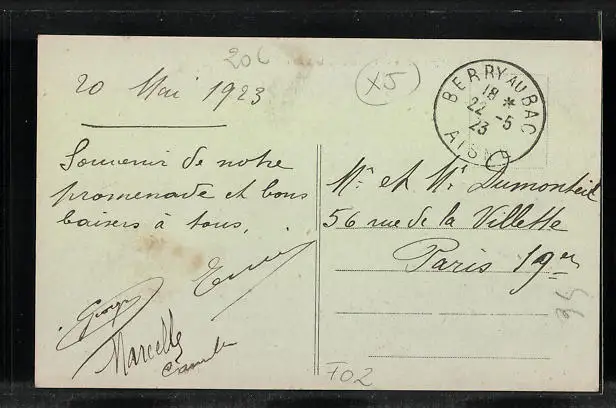 20c
x5
20 Mai 1923
BERRY AU BAC
18 *
22 -5
23
AISNE
Souvenir de notre
promenade et bons
baisers à tous.
Georges
Marcelle
Mr et Mr Dumonteil
56 rue de la Villette
Paris 19er
35
F02